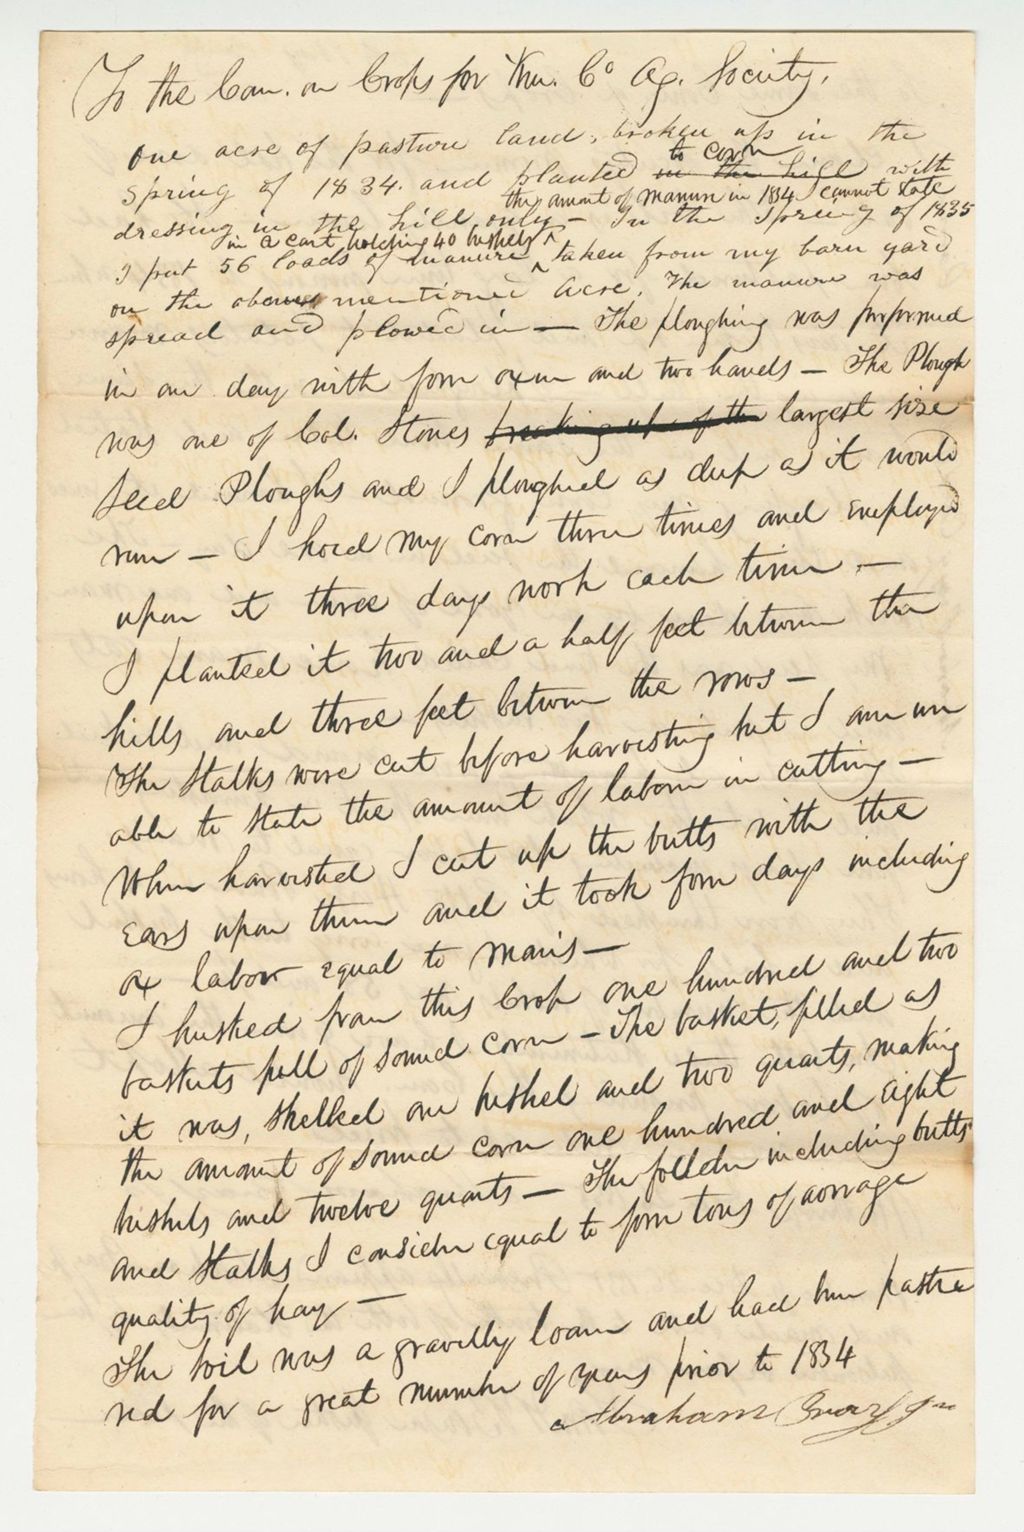 To the Com. on Crops for Ken. Co Ag. Society.
One acre of pasture land, broken up in the
to corn
spring of 1834. and planted in the hill with
the amount of manure in 1834 I cannot state
dressing in the hill only — In the spring of 1835
in a cart holding 40 bushels
I put 56 loads of manure ^ taken from my barn yard
on the above mentioned acre. The manure was
spread and plowed in — The ploughing was performed
in one day with four oxen and two hands — The Plough
was one of Col. Stones breaking up of the largest size
Seed Ploughs and I ploughed as deep as it would
run — I hoed my corn three times and employed
upon it three days work each time. —
I planted it two and a half feet between the
hills and three feet between the rows —
The Stalks were cut before harvesting but I am un
able to state the amount of labour in cutting —
When harvested I cut up the butts with the
Ears upon them and it took four days including
ox labor equal to mans —
I husked from this Crop one hundred and two
baskets full of sound corn — The basket, filled as
it was, shelled one bushel and two quarts, making
the amount of sound corn one hundred and eight
bushels and twelve quarts — The fodder including butts
and Stalks I consider equal to four tons of average
quality of hay —
The soil was a gravelly loam and had been pastu
red for a great number of years prior to 1834
Abraham Jr